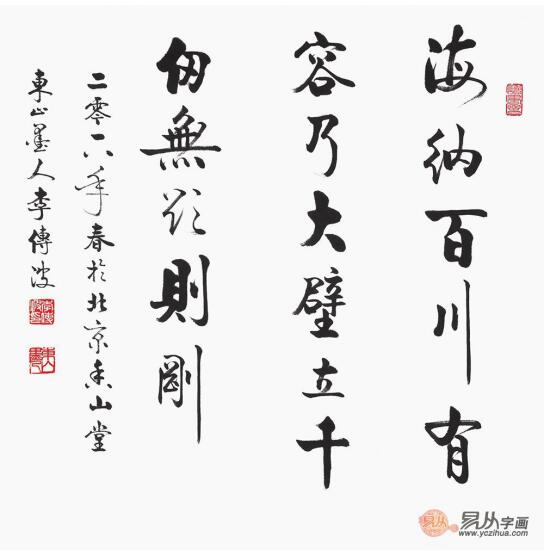 海納百川有
容乃大壁立千
仞無欲則剛
二零一八年春於北京香山堂
東山墨人李傳波
易从字画
www.yczihua.com